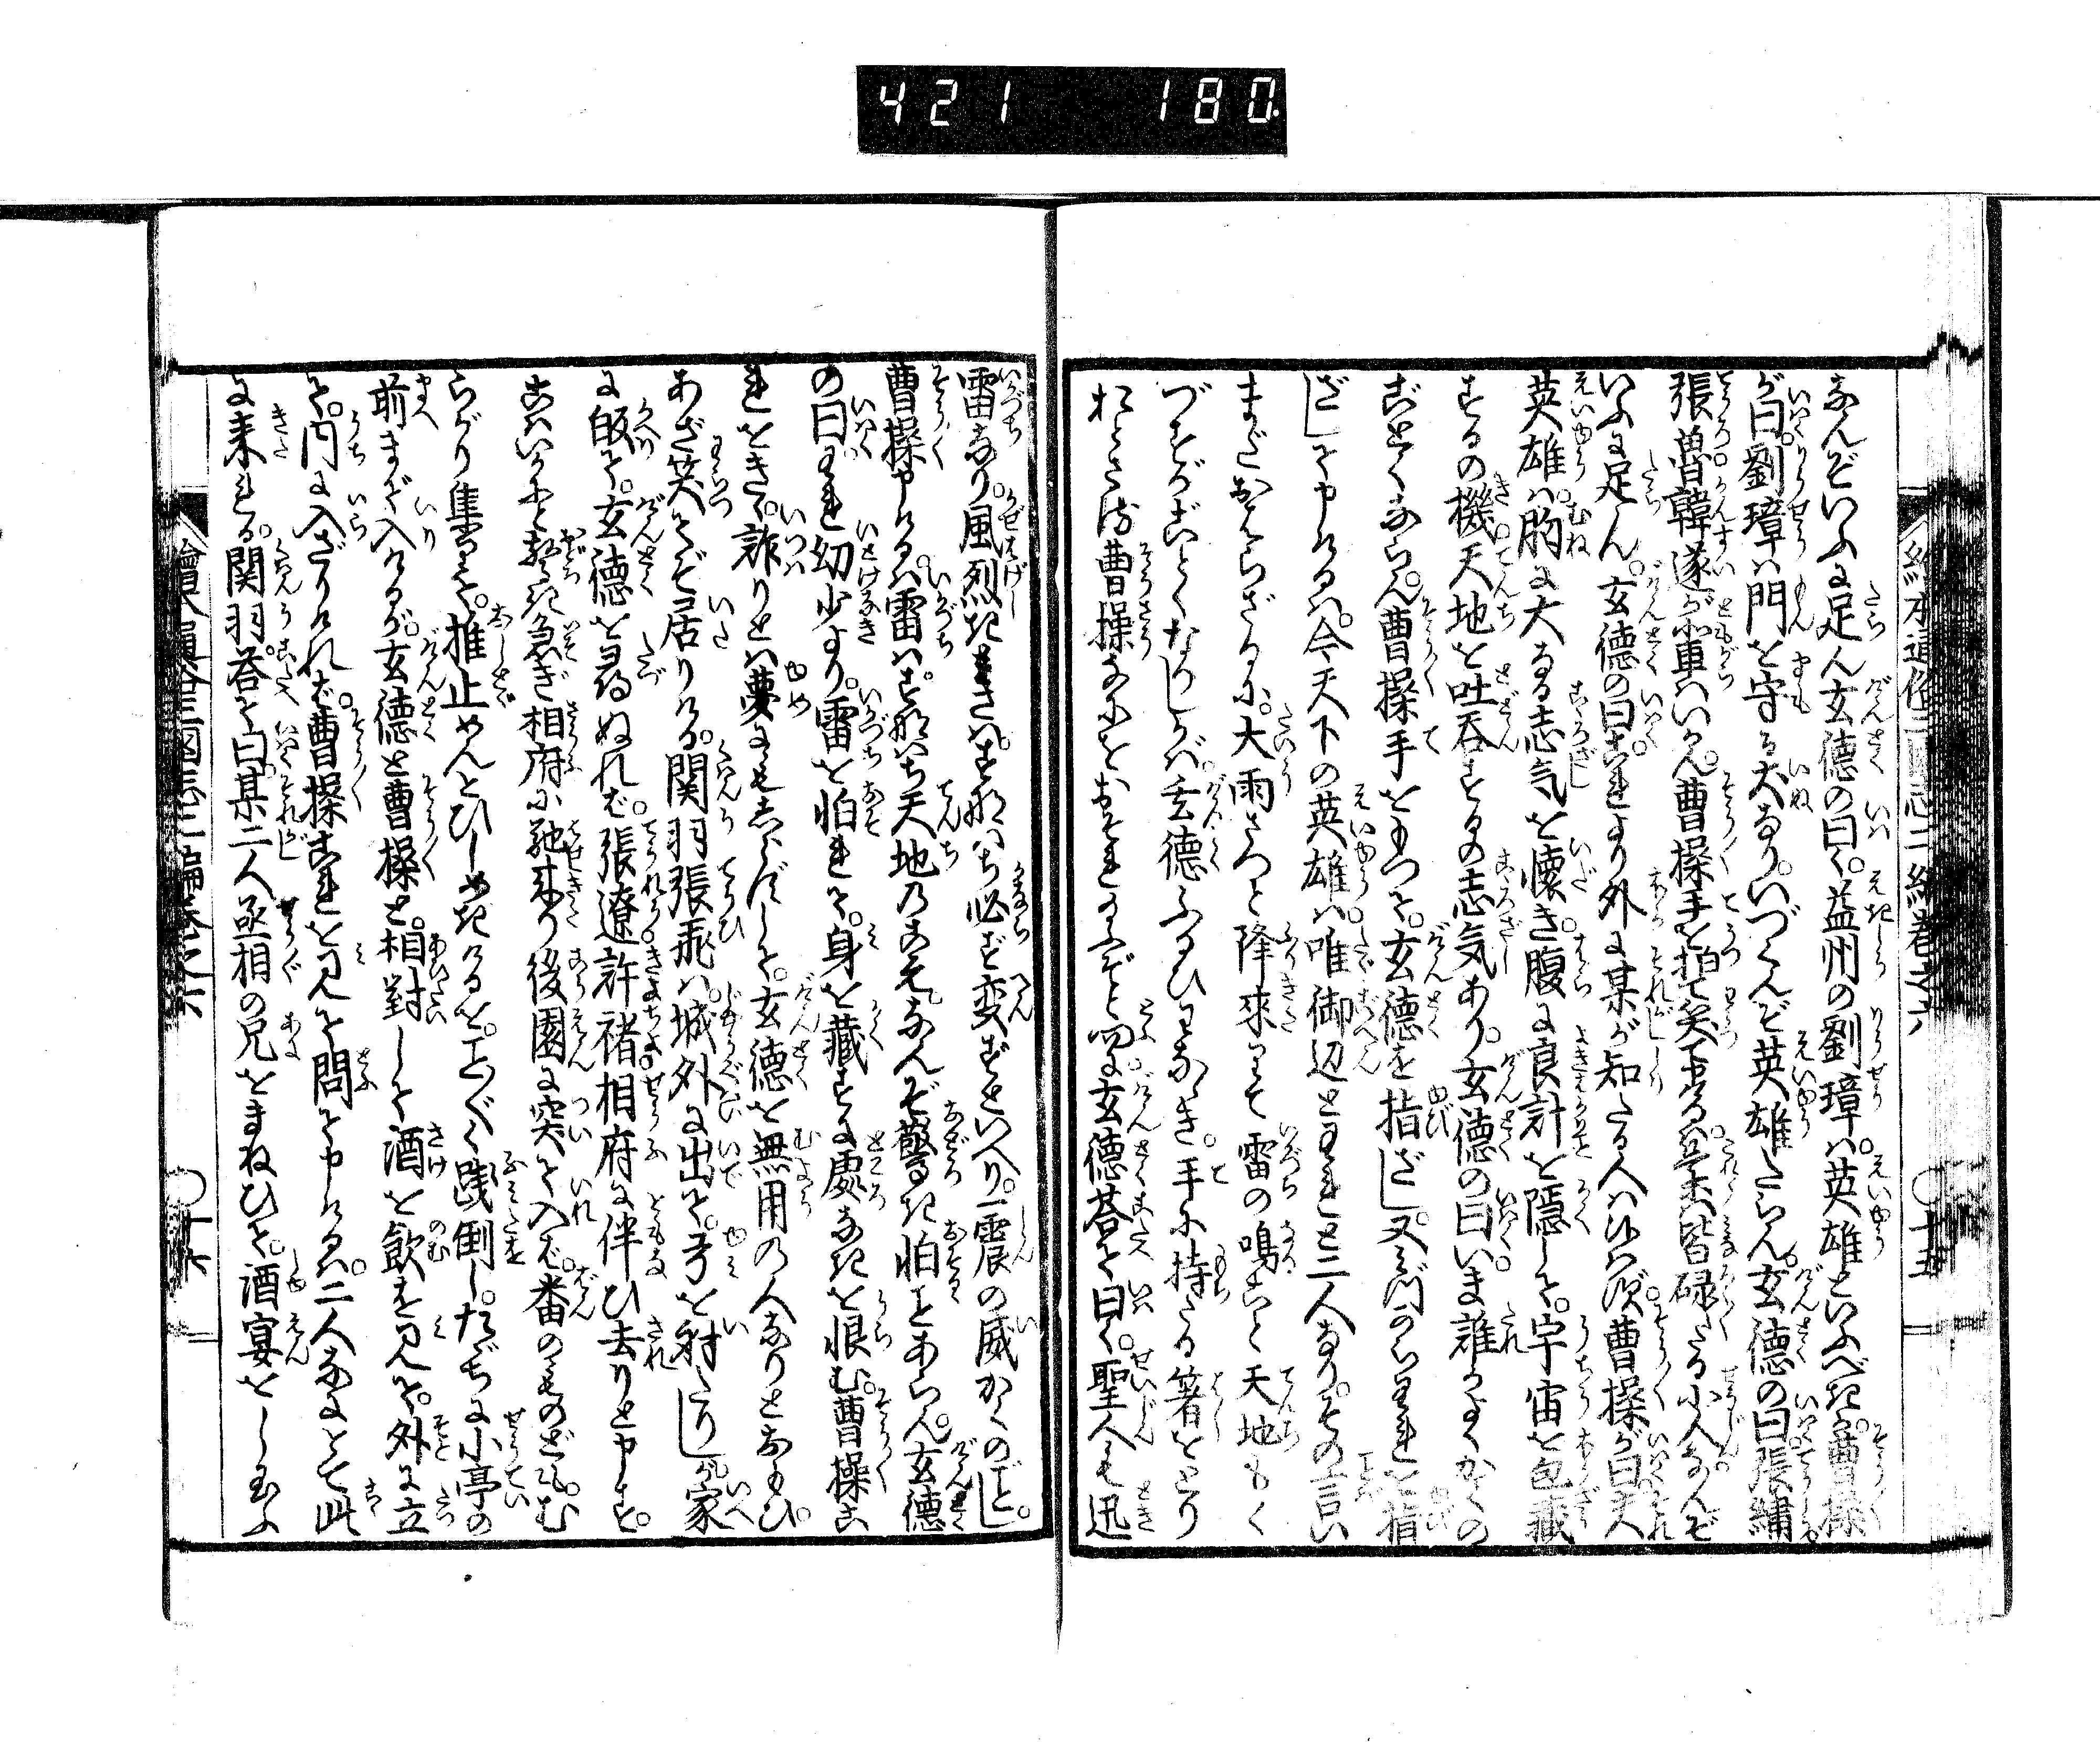 421 180.
絵本通俗三國志二編巻之六 〇十五
なんぞいふに足ん玄徳の曰く。益州の劉璋は。英雄といふべきか。曹操
が曰。劉璋は門を守る犬なり。いづくんぞ英雄たらん。玄徳の曰張繍
張魯韓遂が輩はいかん。曹操手を拍て笑て申るは是等は皆碌たる小人なんぞ
いふに足ん。玄徳の曰。これより外に某が知たる人は候はず曹操が曰夫
英雄は。胸に大なる志気を懐き。腹に良計を隠して。宇宙を包藏
するの機。天地を吐呑するの志気あり。玄徳の曰いま誰かよくかくの
ごとくならん。曹操手をもつて。玄徳を指ざし。又みづからわれを指
ざして申けるは。今天下の英雄は。唯御辺とわれと二人なり。その言い
まだおはらざるに。大雨さつと降來りて雷の鳴こと天地もく
づるゝがごとくなりしかば玄徳ふるひわなゝき。手に持たる箸をとり
おとす曹操なにをおそれ玉ふぞと問ば玄徳答て曰く。聖人も迅
雷なり。風烈きときは。すなはち必ず変ずといへり。一震の威かくのごとし。
曹操申けるは雷は。すなはち天地のこゑなんぞ驚き怕ことあらん。玄徳
の曰われ幼少より。雷を怕れて。身を藏すに處なきを恨む。曹操こ
れをきゝ。詐りとは夢にもしらずして。玄徳を無用の人なりとおもひ。
あざ笑てぞ居りける。関羽張飛は。城外に出て。弓を射たりしが家
に皈て。玄徳を尋ぬれば。張遼許褚相府に伴ひ去りと申す。
こはいかにと驚き急ぎ相府に馳來り後園に突て入ば。番のものども。む
らがり集りて。推止めんとひしめきけるを。ことごとく践倒し。たゞちに小亭の
前まで入けるが。玄徳と曹操と。相對して酒を飲を見て。外に立
て。内に入ざりければ。曹操これを見て問て申けるは。二人なにとて此
に来れる。関羽。答て曰。某二人丞相の兄をまねひて。酒宴をし玉ふ
繪本通俗三國志二編巻之六 〇十六